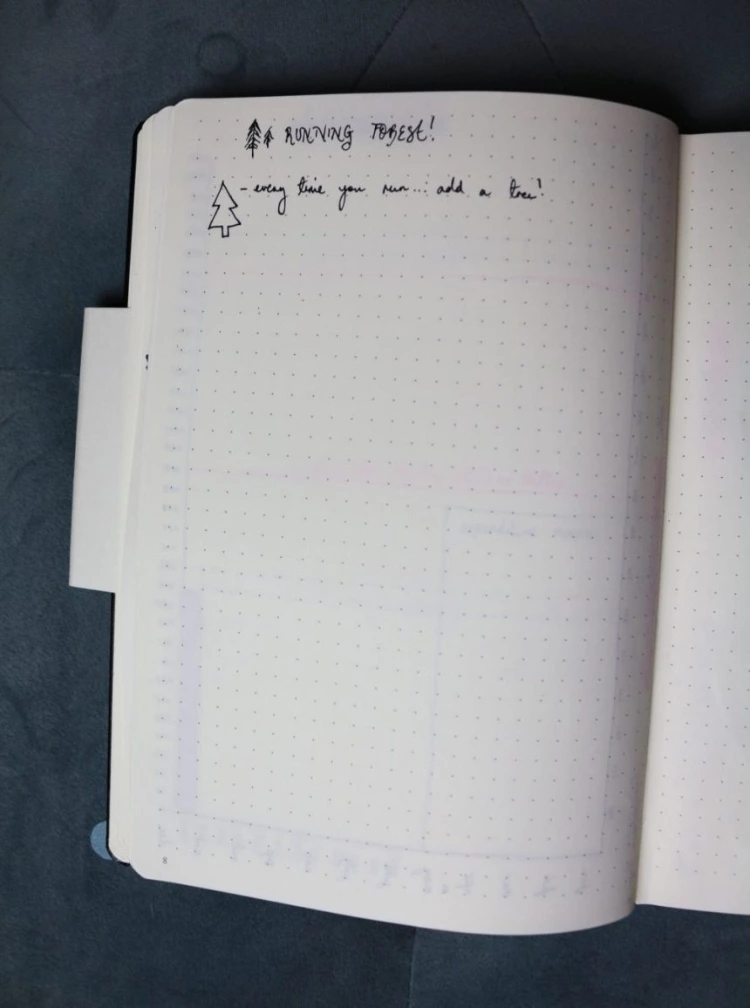 RUNNING FOREST!
- every time you run... add a tree!
8